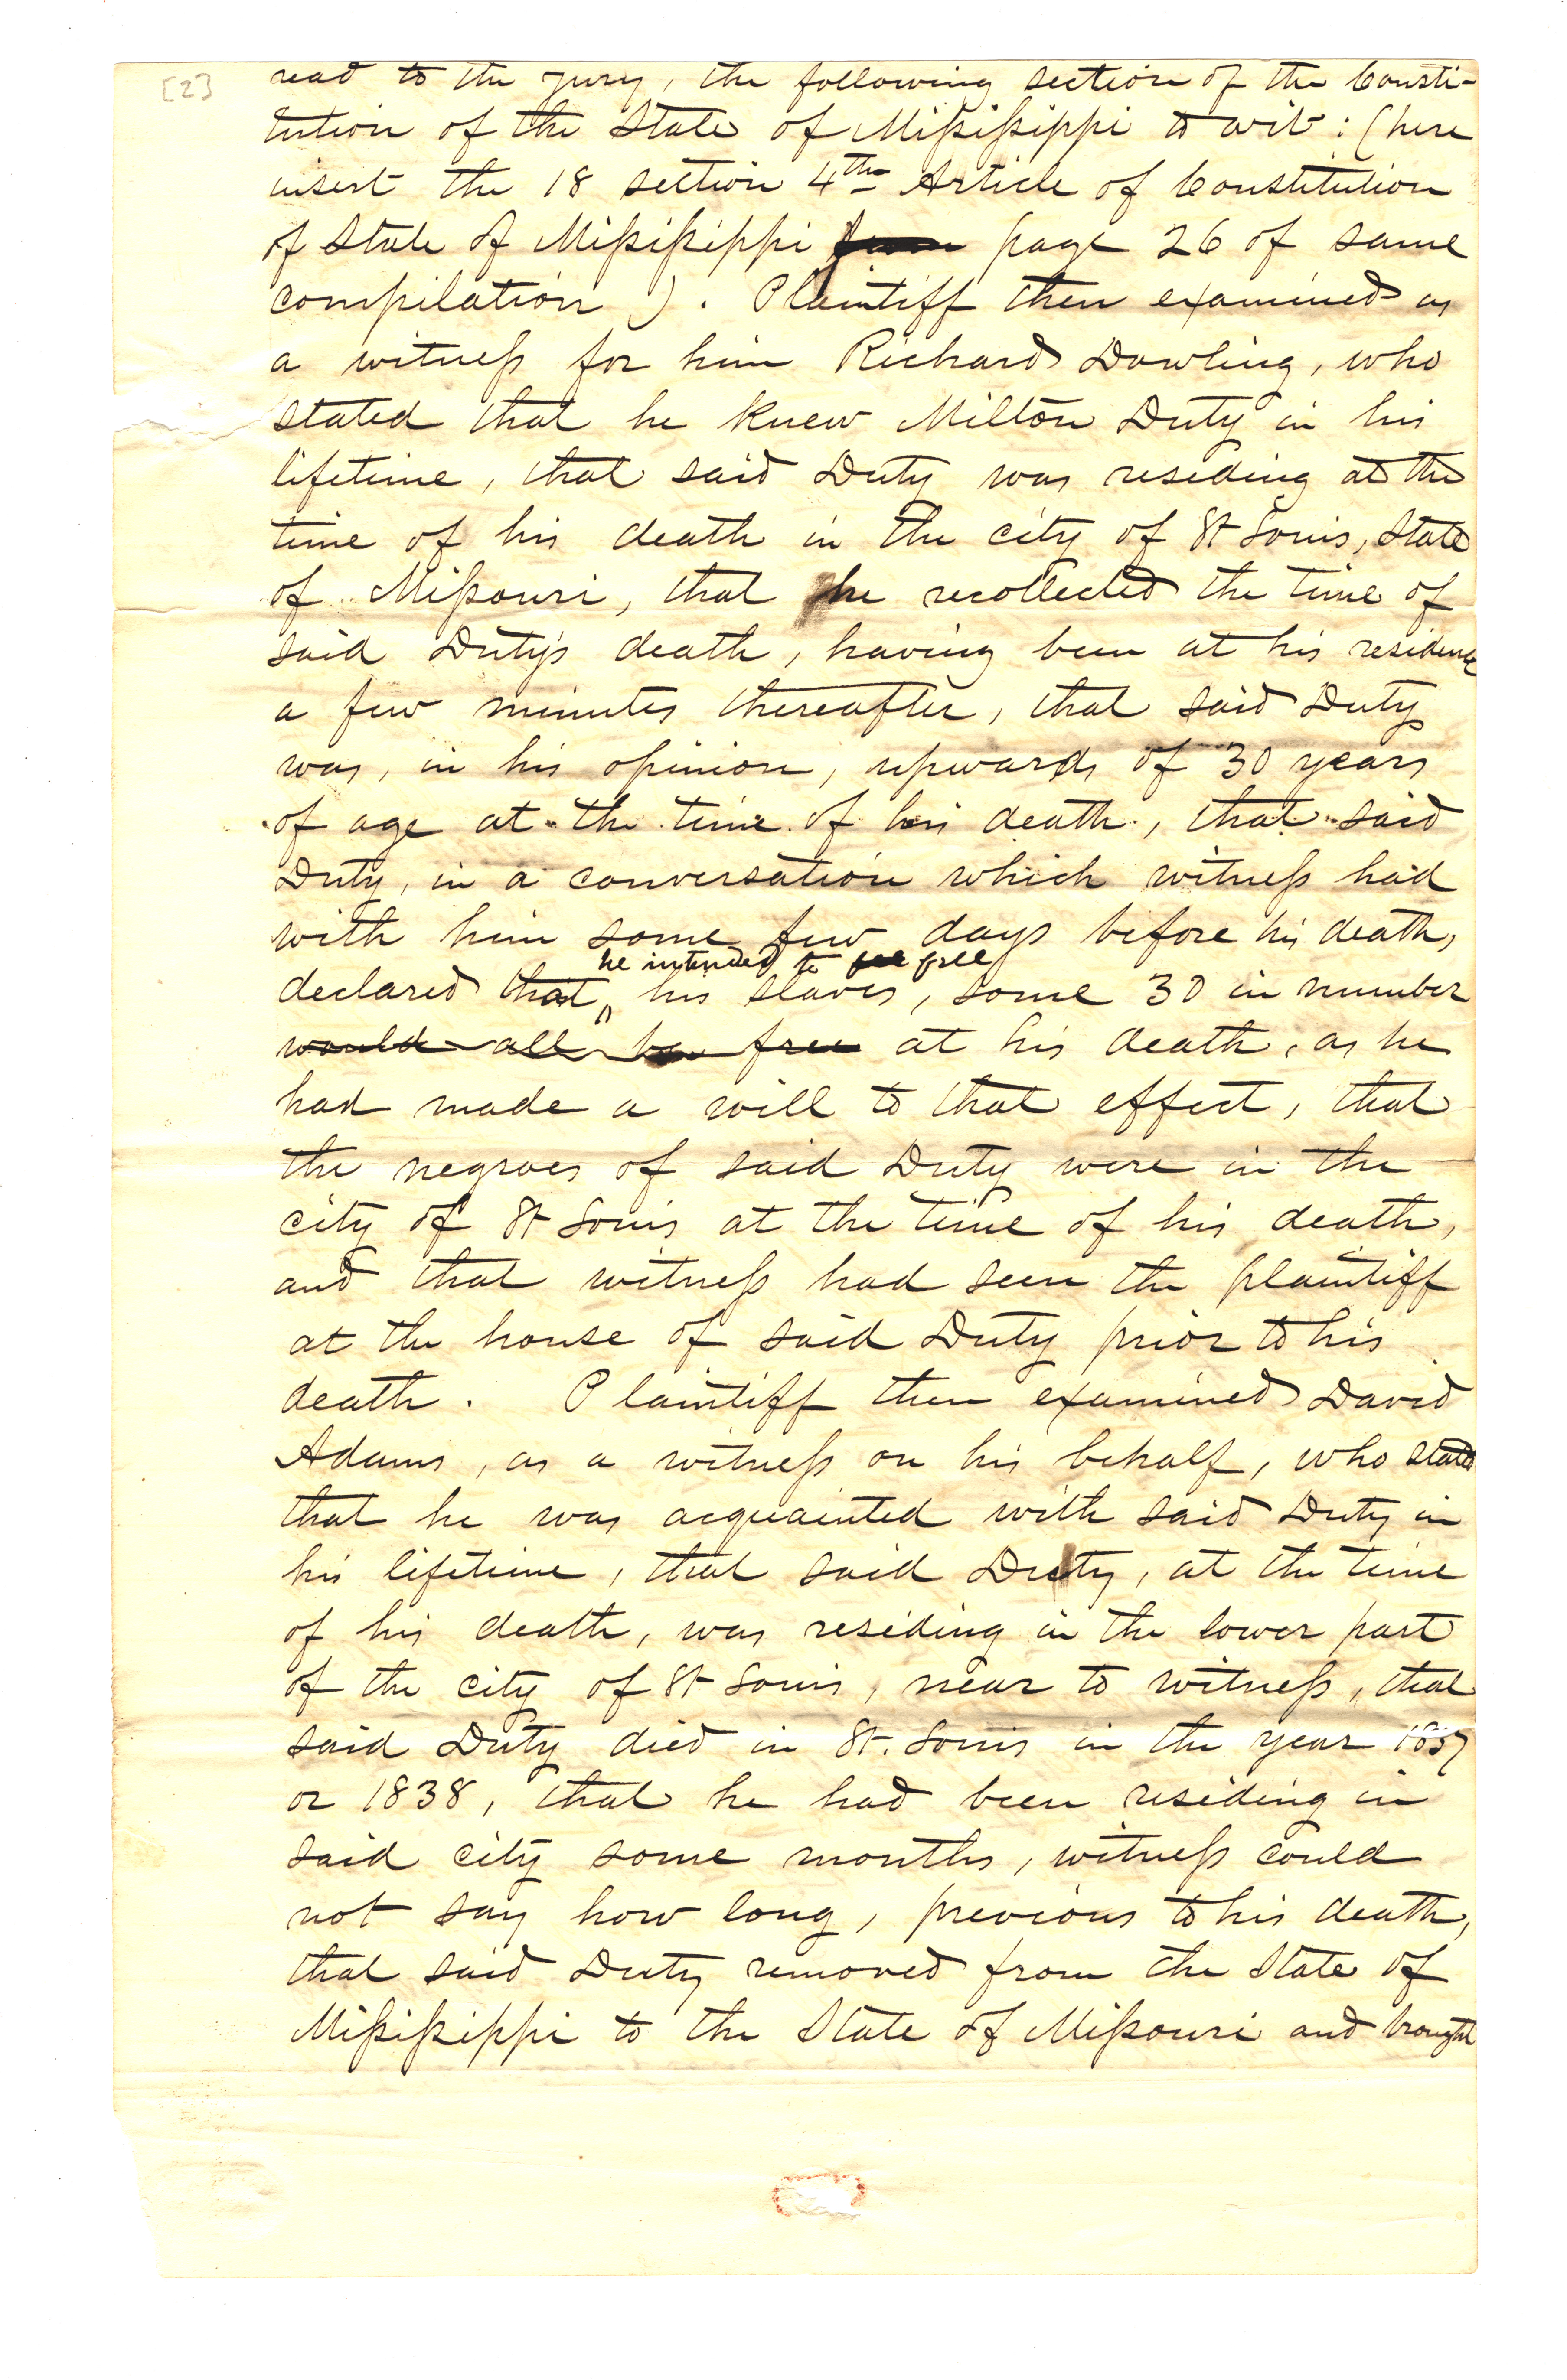 [2]
read to the jury, the following section of the Consti-
tution of the State of Mißißippi to wit: (here
insert the 18 section 4th Article of Constitution
of State of Mißißippi page 26 of same
compilation). Plaintiff then examined as
a witneß for him Richard Dowling, who
stated that he knew Milton Duty in his
lifetime, that said Duty was residing at the
time of his death in the city of St Louis, State
of Mißouri, that he recollected the time of
said Duty's death, having been at his residence
a few minutes thereafter, that said Duty
was, in his opinion, upwards of 30 years
of age at the time of his death, that said
Duty, in a conversation which witneß had
with him some few days before his death,
he intended to free
declared that his slaves, some 30 in number
would all be free at his death, as he
had made a will to that effect, that
the negroes of said Duty were in the
city of St Louis at the time of his death,
and that witneß had seen the plaintiff
at the house of said Duty prior to his
death. Plaintiff then examined David
Adams, as a witneß on his behalf, who stated
that he was acquainted with said Duty in
his lifetime, that said Duty, at the time
of his death, was residing in the lower part
of the city of St Louis, near to witneß, that
said Duty died in St. Louis in the year 1837
or 1838, that he had been residing in
said city some months, witneß could
not say how long, previous to his death,
that said Duty removed from the State of
Mißißippi to the State of Mißouri and brought